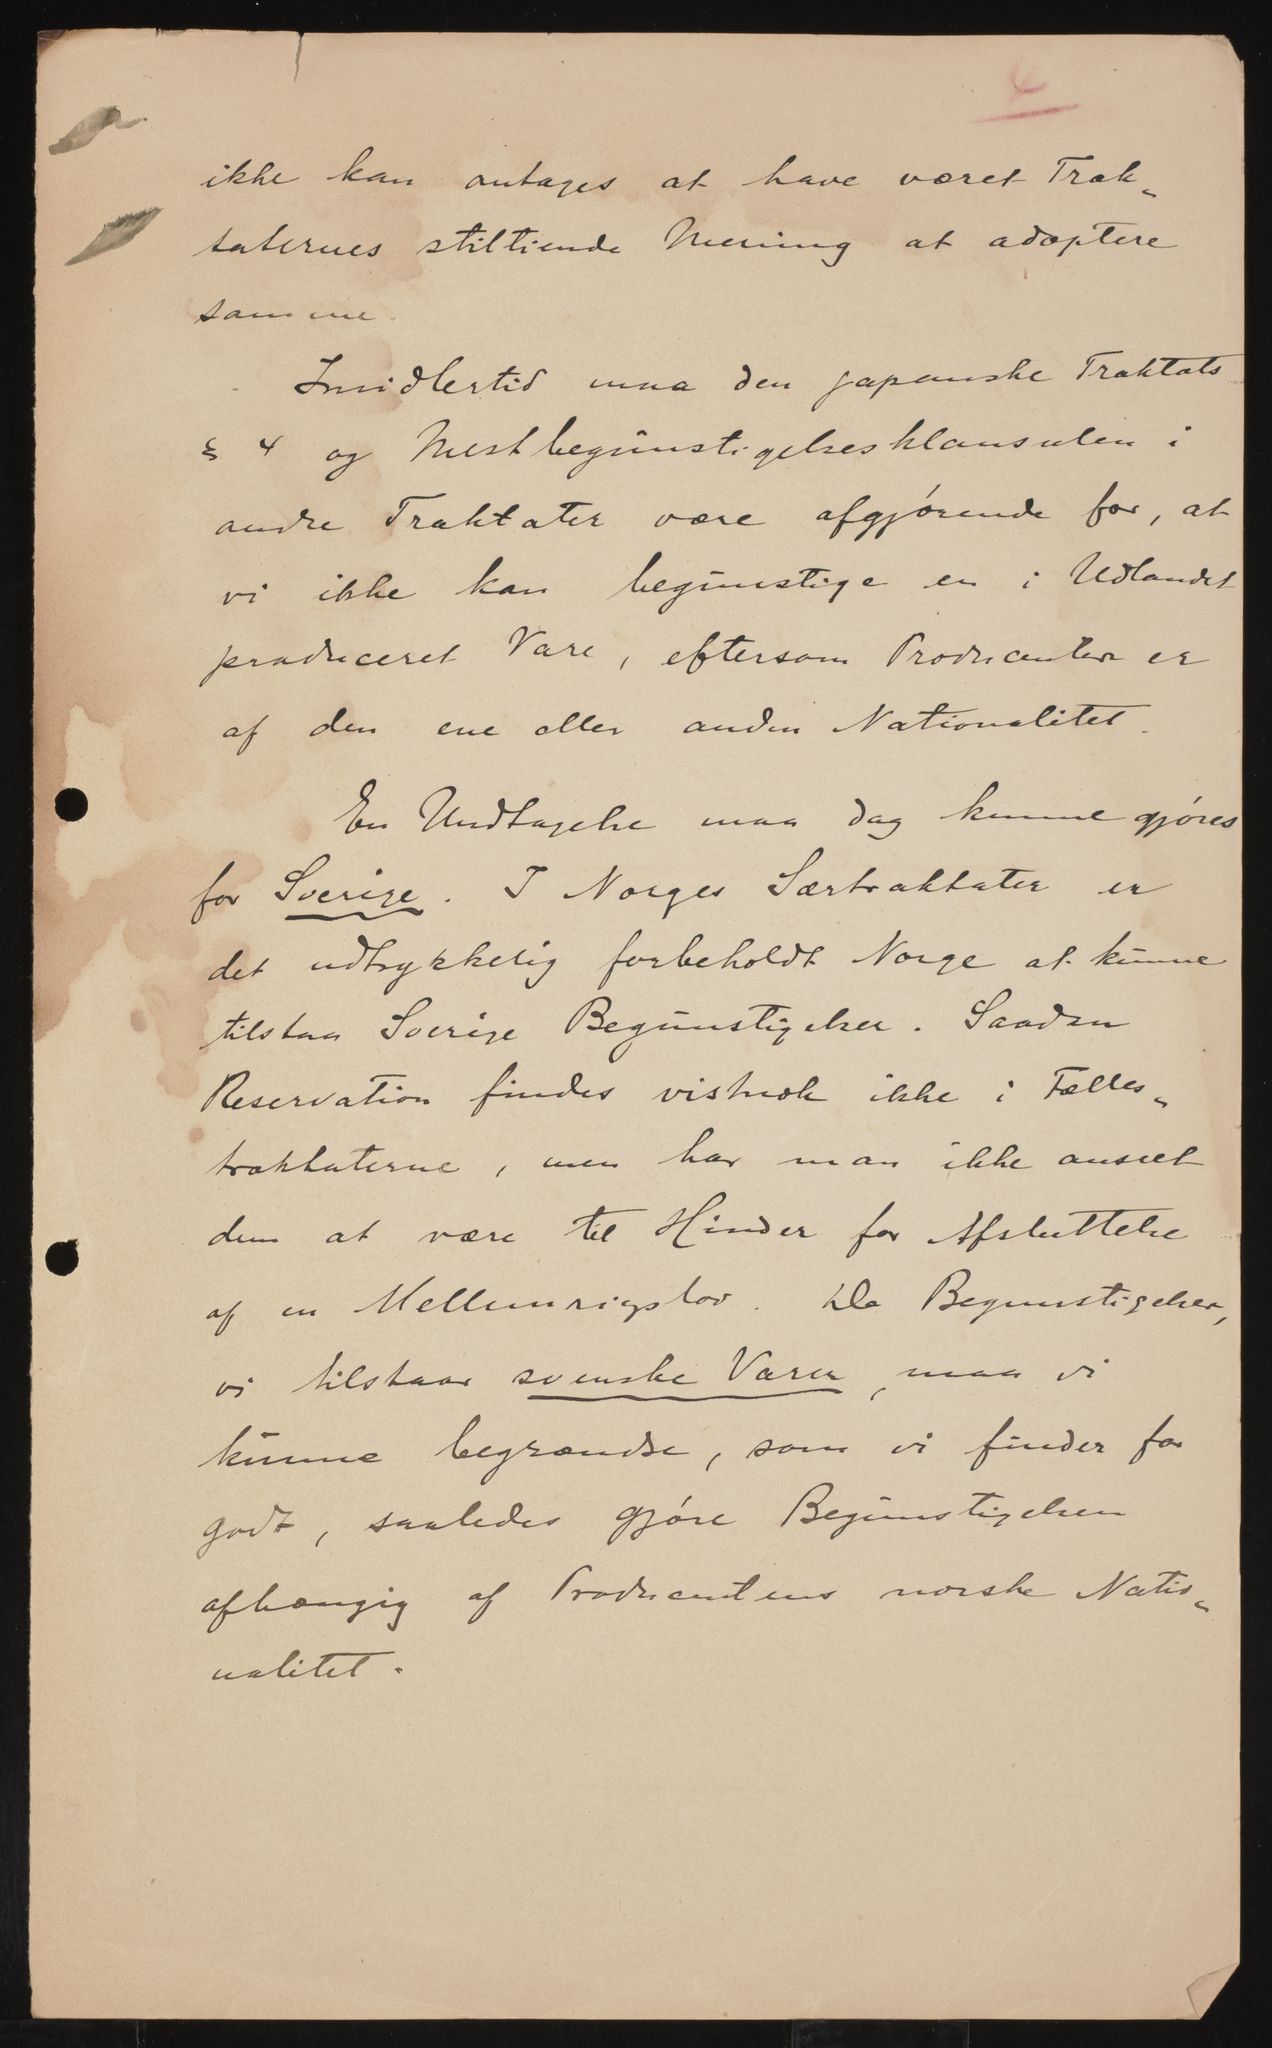 4
ikke kan antages at have været Trak-
taternes stiltiende Mening at adoptere
samme.
Imidlertid maa den japanske Traktats
§ 4 og Mestbegünstigelsesklausulen i
andre Traktater være afgjørende for, at
vi ikke kan begünstige en i Udlandet
produceret Vare, eftersom Producenten er
af den ene eller anden Nationalitet.
En Undtagelse maa dog kunne gjøres
for Sverige. I Norges Særtraktater er
det udtrykkelig forbeholdt Norge at künne
tilstaa Sverige Begünstigelser. Saadan
Reservation findes vistnok ikke i Fælles-
traktaterne, men har man ikke anseet
dem at være til Hinder for Afsluttelse
af en Mellemrigslov. De Begunstigelser,
vi tilstaar svenske Varer, maa vi
künne begrændse, som vi finder for
godt, saaledes gjøre Begünstigelsen
afhængig af Producentens norske Natio-
nalitet.